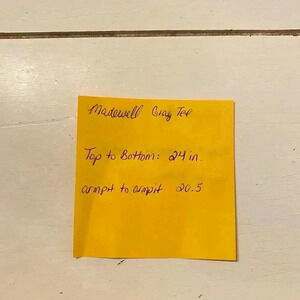 Madewell Gray Tee
Top to Bottom: 24 in.
armpit to armpit 20.5